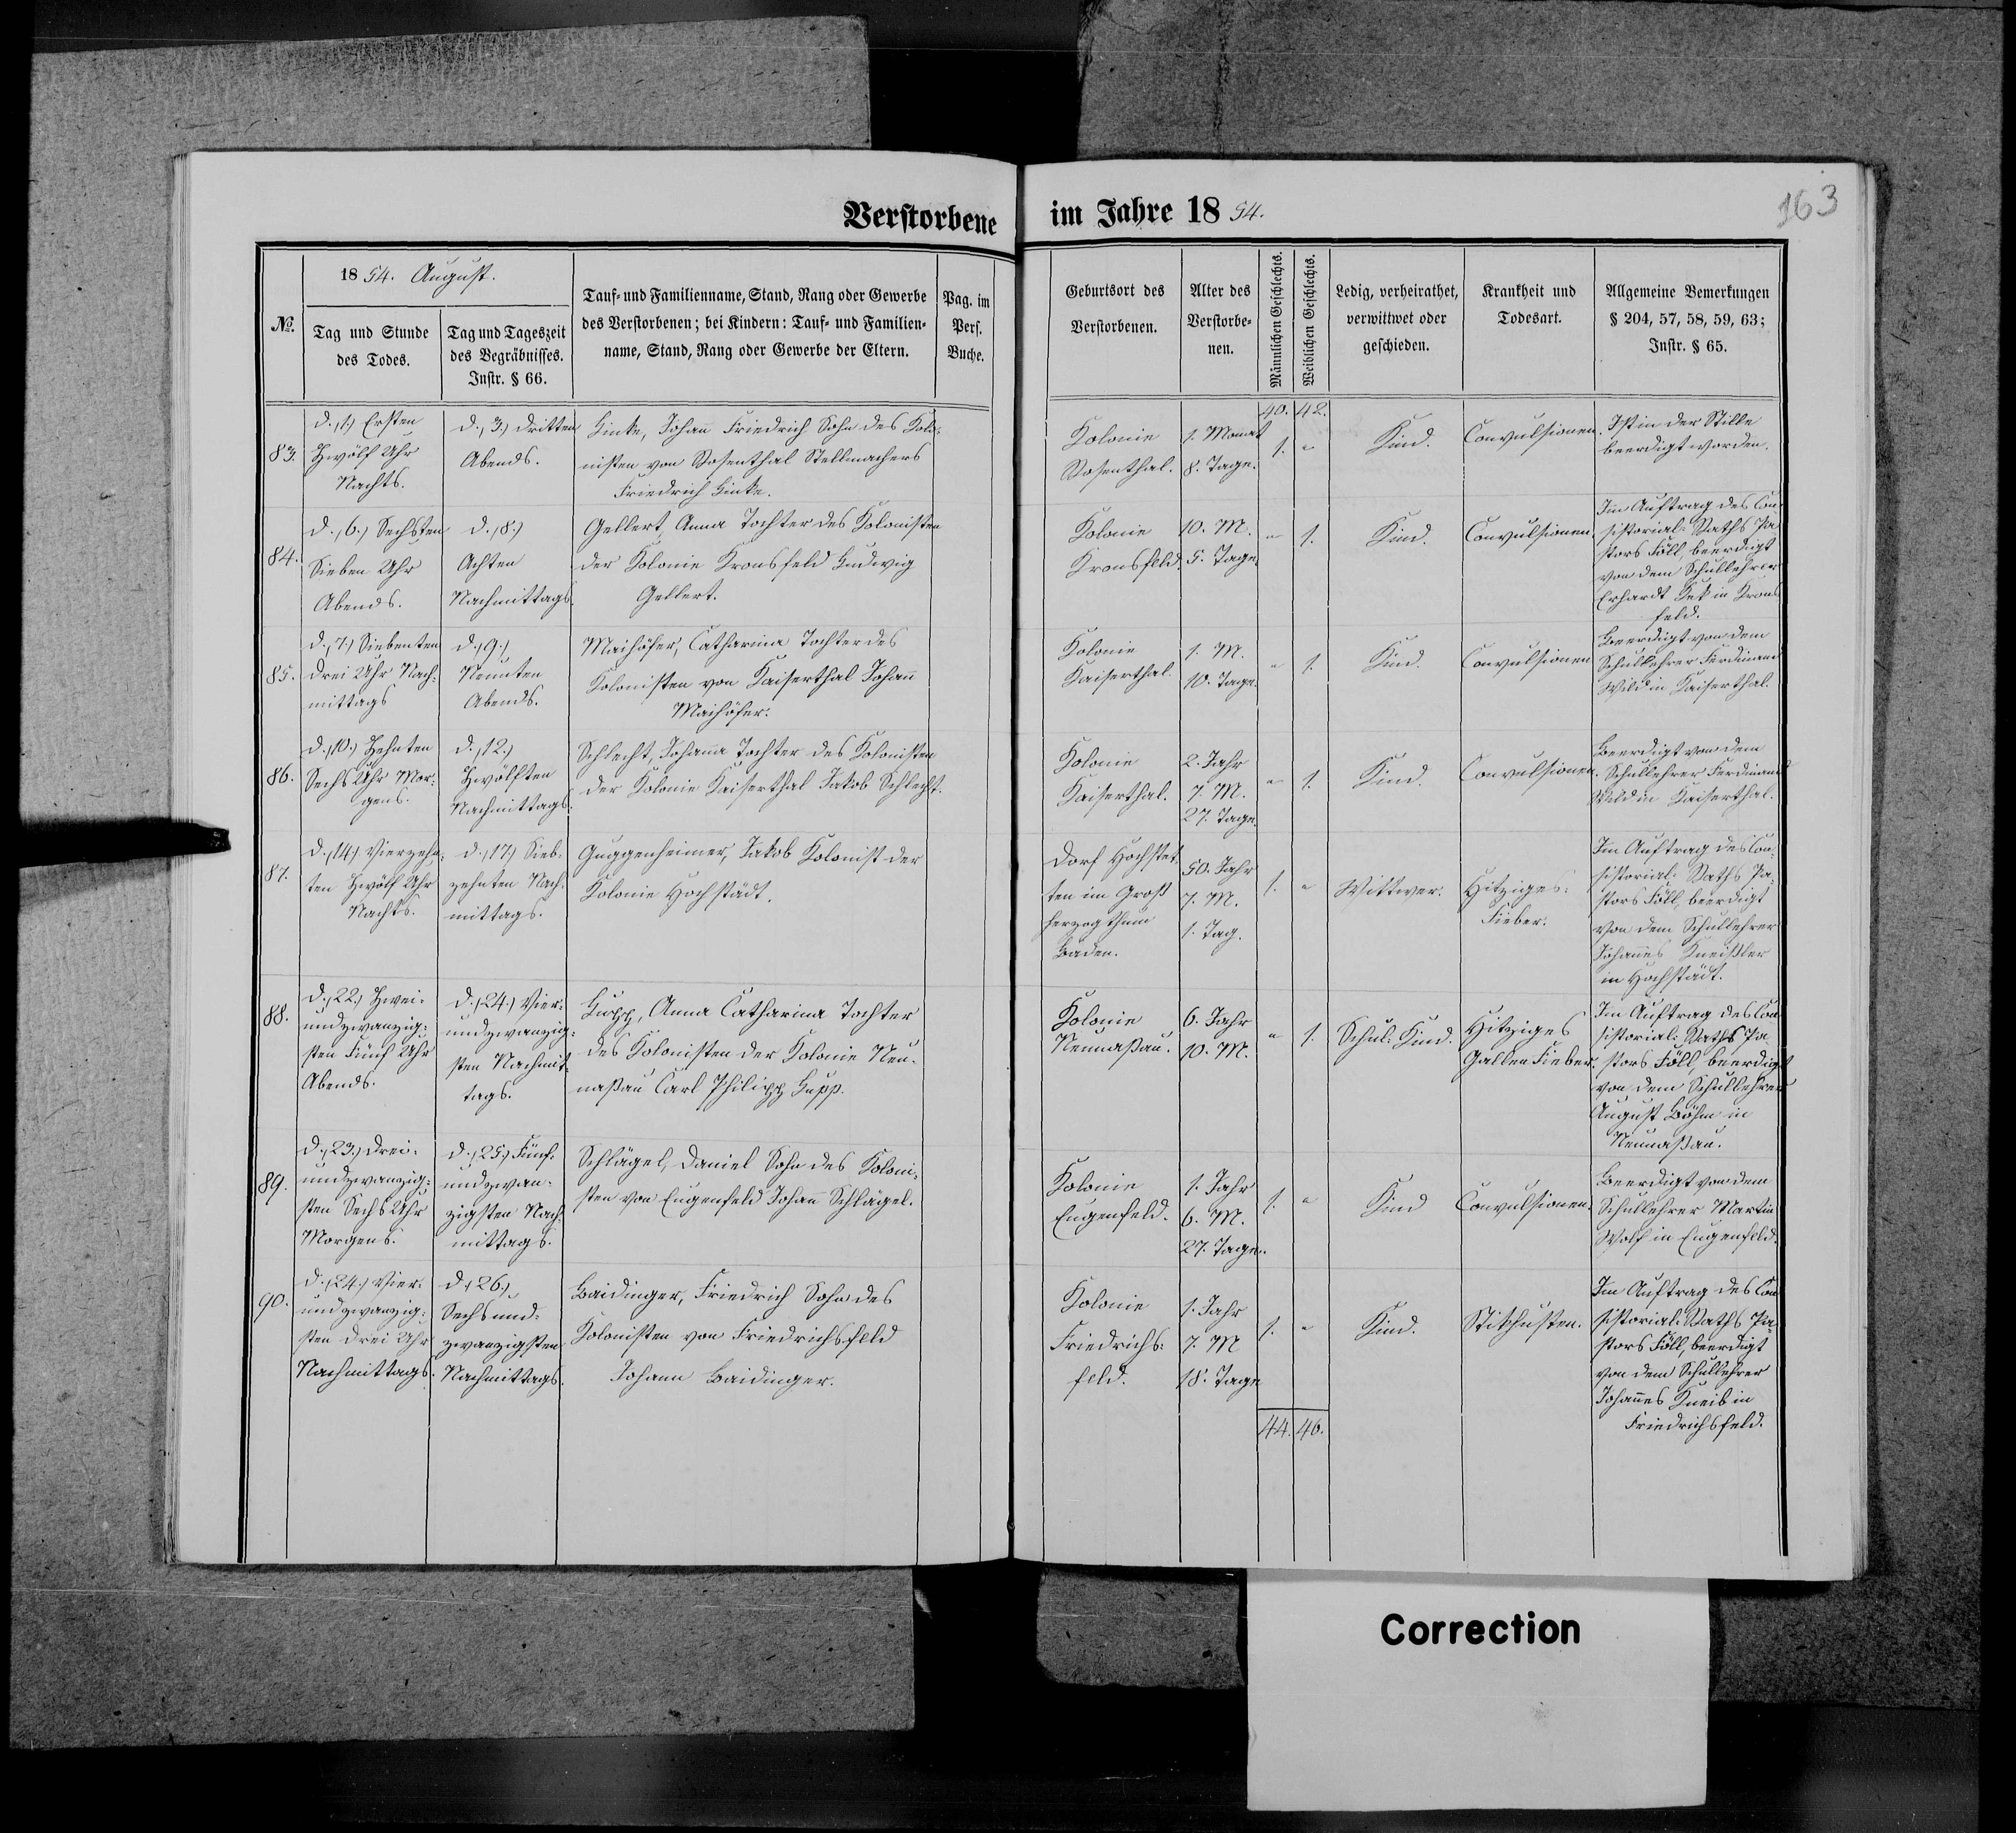 Verstorbene im Jahre 1854.
163
No.
1854. August.
Tag und Stunde
des Todes.
Tag und Tageszeit
des Begräbnisses.
Instr. § 66.
Tauf- und Familienname, Stand, Rang oder Gewerbe
des Verstorbenen; bei Kindern: Tauf- und Familien-
name, Stand, Rang oder Gewerbe der Eltern.
Pag. im
Pers.
Buche.
Geburtsort des
Verstorbenen.
Alter des
Verstorbe-
nen.
Männlichen Geschlechts.
Weiblichen Geschlechts.
Ledig, verheirathet,
verwittwet oder
geschieden.
Krankheit und
Todesart.
Allgemeine Bemerkungen
§ 204, 57, 58, 59, 63;
Instr. § 65.
40. 42.
83.
d. 1.) Ersten
Zwölf Uhr
Nachts.
d. 3.) Dritten
Abends.
Johann Friedrich Sohn des Kolo-
nisten von Rosenthal Stellmachers
Friedrich
Kolonie
Rosenthal.
1. Monat
8. Tage.
1. "
Kind.
Convulsionen.
Ist in der Stille
beerdigt worden.
84.
d. 6.) Sechsten
Sieben Uhr
Abends.
d. 8.)
Achten
Nachmittags.
Gellert, Anna Tochter des Kolonisten
der Kolonie Kronsfeld Ludwig
Gellert.
Kolonie
Kronsfeld.
10. M.
5. Tage.
" 1.
Kind.
Convulsionen.
Im Auftrag des Con-
sistorial-Raths Pa-
stors Föll, beerdigt
von dem Schullehrer
Erhardt in Krons-
feld.
85.
d. 7.) Siebenten
Drei Uhr Nach-
mittags
d. 9.)
Neunten
Abends.
Maihöfer, Catharina Tochter des
Kolonisten von Kaiserthal Johann
Maihöfer.
Kolonie
Kaiserthal.
1. M.
10. Tage.
" 1.
Kind.
Convulsionen
Beerdigt von dem
Schullehrer Ferdinand
Wild in Kaiserthal.
86.
d. 10.) Zehnten
Sechs Uhr Mor-
gens.
d. 12.)
Zwölften
Nachmittags.
Schlecht, Johanna Tochter des Kolonisten
der Kolonie Kaiserthal Jakob Schlecht.
Kolonie
Kaiserthal.
2. Jahr
7. M.
27. Tage.
" 1.
Kind.
Convulsionen.
Beerdigt von dem
Schullehrer Ferdinand
Wild in Kaiserthal.
87.
d. 14.) Vierzehn-
ten Zwölf Uhr
Nachts.
d. 17.) Sieb-
zehnten Nach-
mittags.
Guggenheimer, Jakob Kolonist der
Kolonie Hochstädt.
Dorf Hochstet-
ten im Groß
herzogthum
Baden.
50. Jahr
7. M.
1. Tag.
1. "
Wittwer.
Hitziges-
Fieber.
Im Auftrag des Con-
sistorial-Raths Pa-
stors Föll, beerdigt
von dem Schullehrer
Johannes Kneißler
in Hochstädt.
88.
d. 22.) Zwei-
undzwanzig-
sten Fünf Uhr
Abends.
d. 24.) Vier-
undzwanzig-
sten Nachmit-
tags.
Hupp, Anna Catharina Tochter
des Kolonisten der Kolonie Neu-
naßau Carl Philipp Hupp.
Kolonie
Neunaßau.
6. Jahr
10. M.
" 1.
Schul-Kind.
Hitziges
Gallen Fieber.
Im Auftrag des Con-
sistorial-Raths Pa-
stors Föll, beerdigt
von dem Schullehrer
August Böhm in
Neunaßau.
89.
d. 23.) Drei-
undzwanzig-
sten Sechs Uhr
Morgens.
d. 25.) Fünf-
undzwan-
zigsten Nach-
mittags.
Schlägel, Daniel Sohn des Koloni-
sten von Eugenfeld Johann Schlägel.
Kolonie
Eugenfeld.
1. Jahr
6. M.
27. Tage.
1. "
Kind
Convulsionen.
Beerdigt von dem
Schullehrer Martin
Wolf in Eugenfeld.
90.
d. 24.) Vier-
undzwanzig-
sten Drei Uhr
Nachmittags.
d. 26.)
Sechsund-
zwanzigsten
Nachmittags.
Baidinger, Friedrich Sohn des
Kolonisten von Friedrichsfeld
Johann Baidinger.
Kolonie
Friedrichs-
feld.
1. Jahr
7. M
18. Tage
1. "
Kind.
Stikhusten.
Im Auftrag des Con-
sistorial-Raths Pa-
stors Föll, beerdigt
von dem Schullehrer
Johannes Kneib in
Friedrichsfeld.
44. 46.
Correction